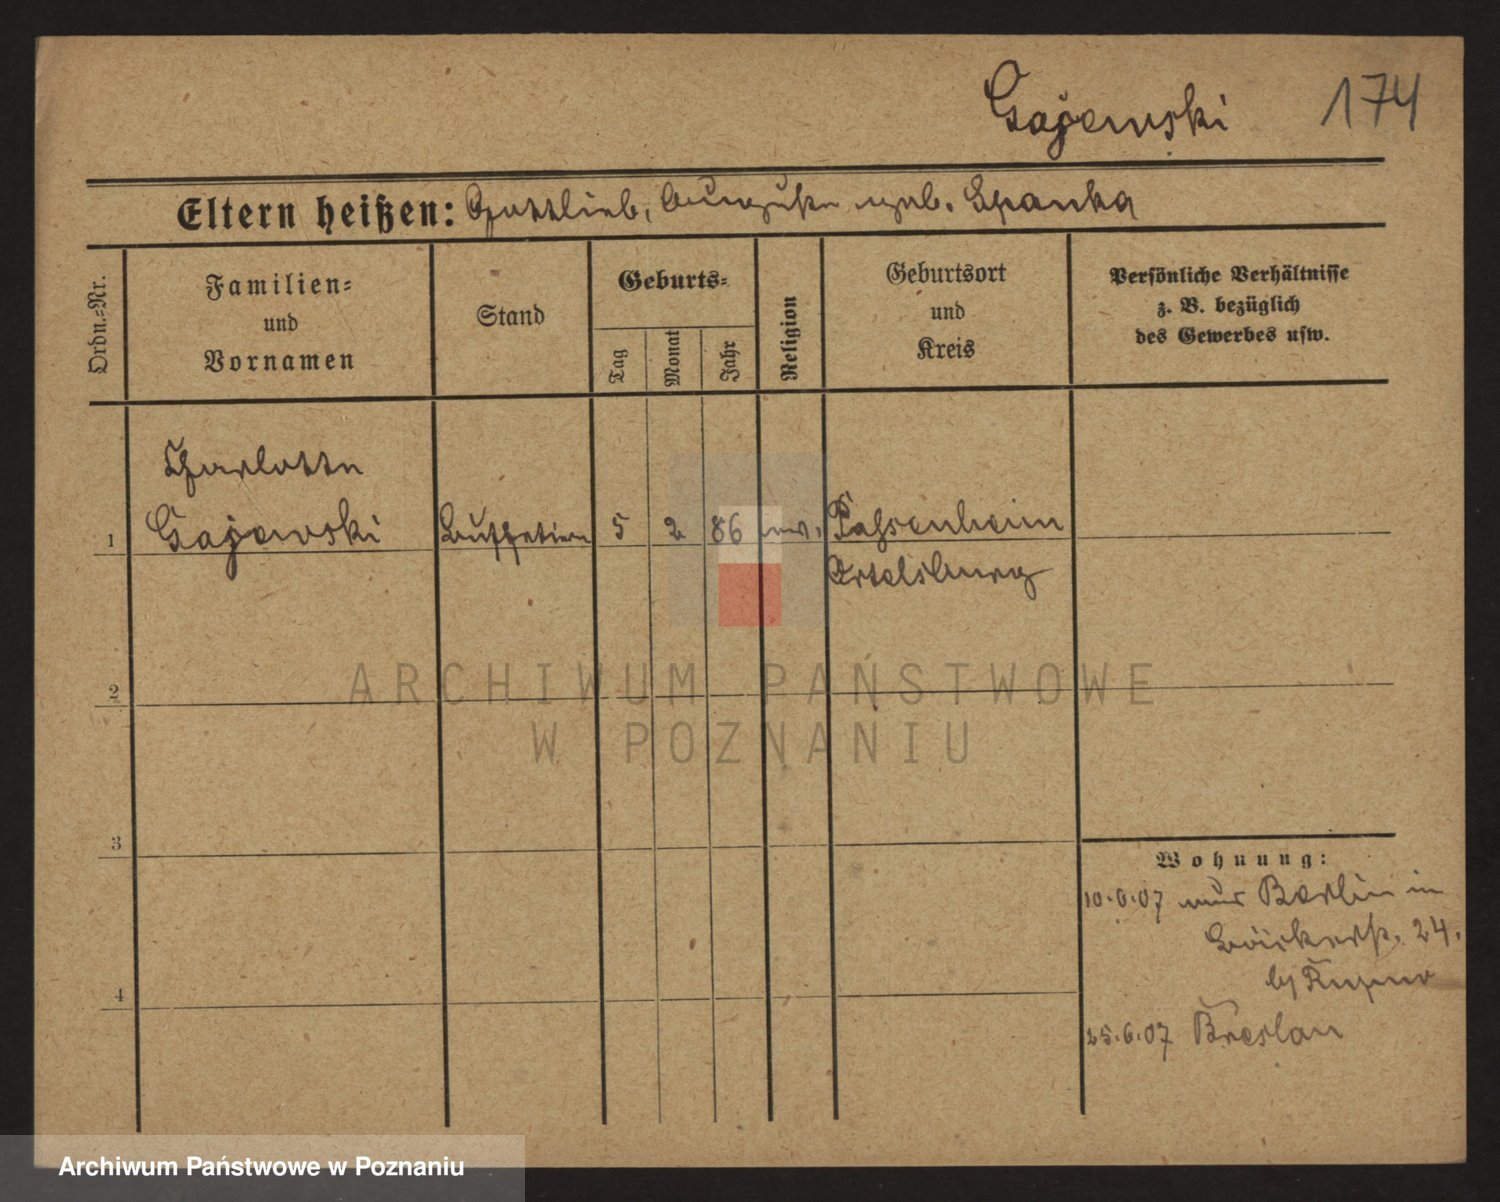 Gajewski 174
Eltern heißen: Gottlieb, Auguste geb. Spanka
Ordn.-Nr.
Familien-
und
Vornamen
Stand
Geburts-
Tag
Monat
Jahr
Religion
Geburtsort
und
Kreis
Persönliche Verhältnisse
z. B. bezüglich
des Gewerbes usw.
Charlotte
1 Gajewski Buffetiere 5 2 86 ev. Passenheim
Ortelsburg
2
3
4
Wohnung:
10.6.07 aus Berlin in
24.
b/
25.6.07 Breslau
ARCHIWUM PAŃSTWOWE
W POZNANIU
Archiwum Państwowe w Poznaniu